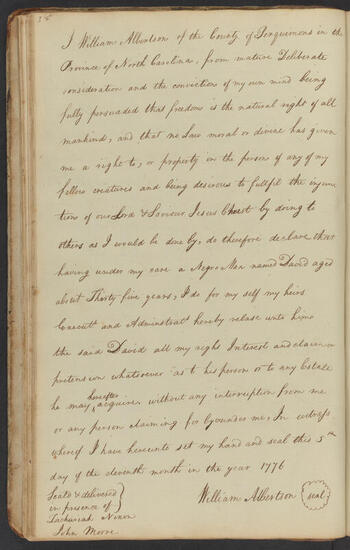 I William Albertson of the County of Perquimons in the
Province of North Carolina, from mature Deliberate
consideration and the conviction of my own mind being
fully persuaded that freedom is the natural right of all
mankind, and that no Law moral or divine has given
me a right to, or property in the person of any of my
fellow creatures and being desirous to fullfil the injunc
tions of our Lord & Saviour Jesus Christ by doing to
others as I would be done by, do therefore declare that
having under my care a Negro Man named David aged
about Thirty five years, I do for my self my heirs
Executrs and Adminstratrs hereby relase unto him
the said David all my right Interest and claim or
pretension whatsoever as to his person or to any Estate
he may hereafter acquire without any interruption from me
or any person claiming for by or under me, In witness
whereof I have hereunto set my hand and seal this 5th
day of the eleventh month in the year 1776
Seal'd & delivered
in presence of
William Albertson seal
Zachariah Nixon
John Moore